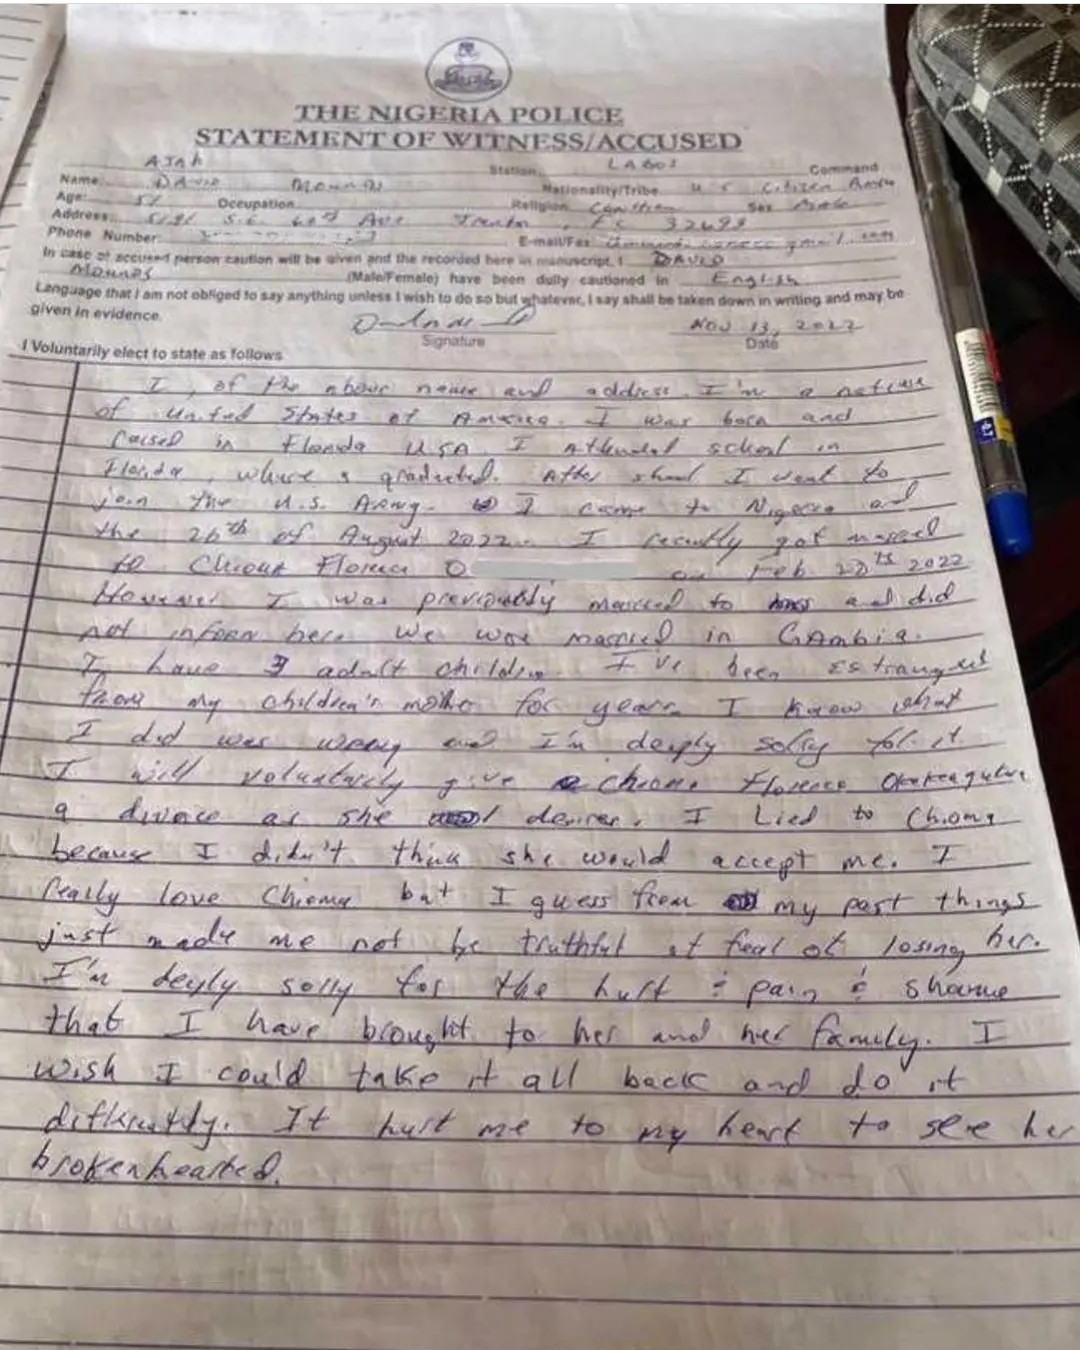 THE NIGERIA POLICE
STATEMENT OF WITNESS/ACCUSED
AJAH Station LAGOS Command
Name: DAVID Nationality/Tribe U S Citizen
Age: 51 Occupation Religion Christian Sex Male
Address: S.E. 60th Ave Trenton, 32693
Phone Number: E-mail/Fax gmail.com
In case of accused person caution will be given and the recorded here in manuscript, I DAVID
(Male/Female) have been dully cautioned in English
Language that I am not obliged to say anything unless I wish to do so but whatever, I say shall be taken down in writing and may be
given in evidence.
NOV 13, 2022
Signature Date
I Voluntarily elect to state as follows
I, of the above name and address. I'm a
of United States of America. I was born and
raised in Florida USA. I attended school in
Florida, where I graduated. After school I went to
join the U.S. Army. I came to Nigeria
the 26th of August 2022. I recently got married
to Florence O on Feb. 2022
However I was previously married to and did
not inform her. We were married in Gambia.
I have 3 adult children. I've been estranged
from my children's mother for years. I know what
I did was wrong and I'm deeply solly for it.
I will voluntarily give Chioma Florence
a divorce as she desires. I Lied to Chioma
because I didn't think she would accept me. I
really love Chioma but I guess from my past things
just made me not be truthful of fear of losing her.
I'm deeply solly for the hurt & pain & shame
that I have brought to her and her family. I
wish I could take it all back and do it
differently. It hurt me to my heart to see her
brokenhearted.